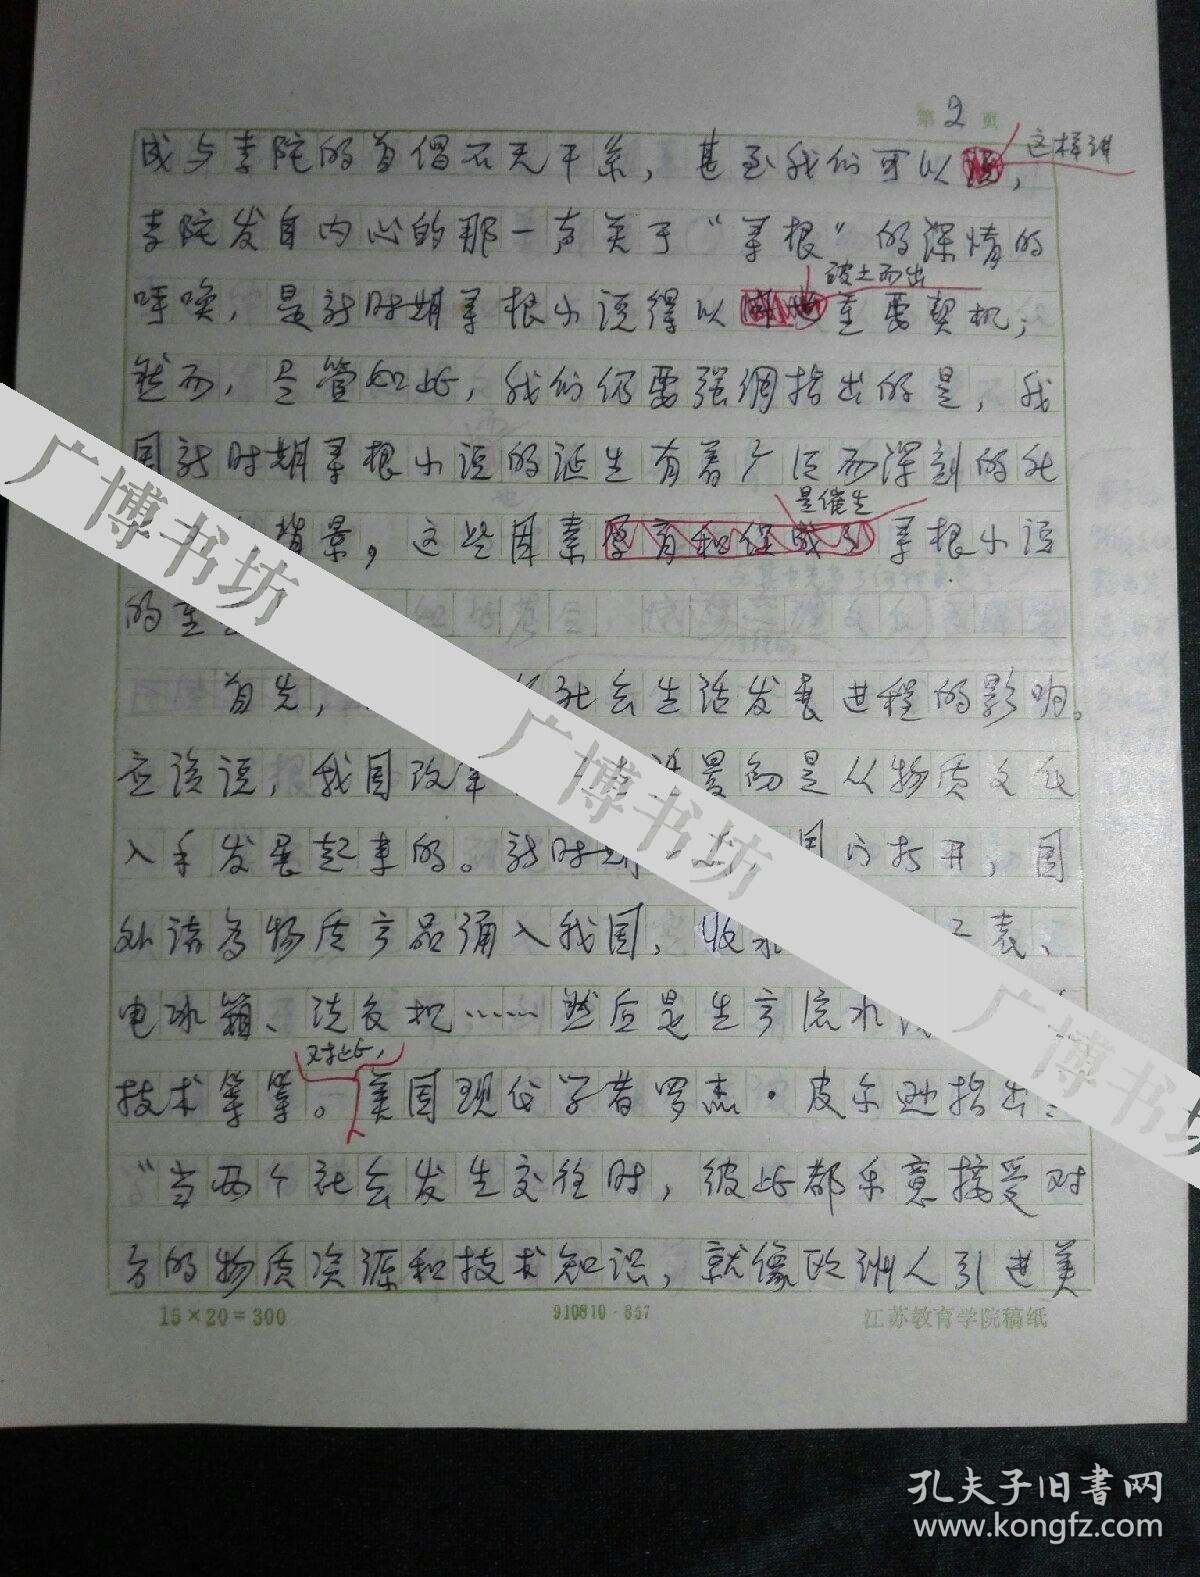 第2页
成与李陀的首倡不无干系，甚至我们可以这样讲，
李陀发自内心的那一声关于“寻根”的深情的
破土而出
呼唤，是新时期寻根小说得以重要契机，
然而，尽管如此，我们仍要强调指出的是，我
国新时期寻根小说的诞生有着广泛而深刻的社
是催生
背景，这些因素孕育和促成了寻根小说
的
首先，社会生活发展进程的影响。
应该说，我国改革最初是从物质文化
入手发展起来的。新时期国门打开，国
外诸多物质产品涌入我国，收
表、
电冰箱、洗衣机……然后是生产流水
对此，
技术等等。美国现代学者罗杰·皮尔逊指出：
“当两个社会发生交往时，彼此都乐意接受对
方的物质资源和技术知识，就像欧洲人引进美
15×20=300
910810·857
江苏教育学院稿纸
广博书坊
广博书坊
广博书坊
孔夫子旧书网
www.kongfz.com